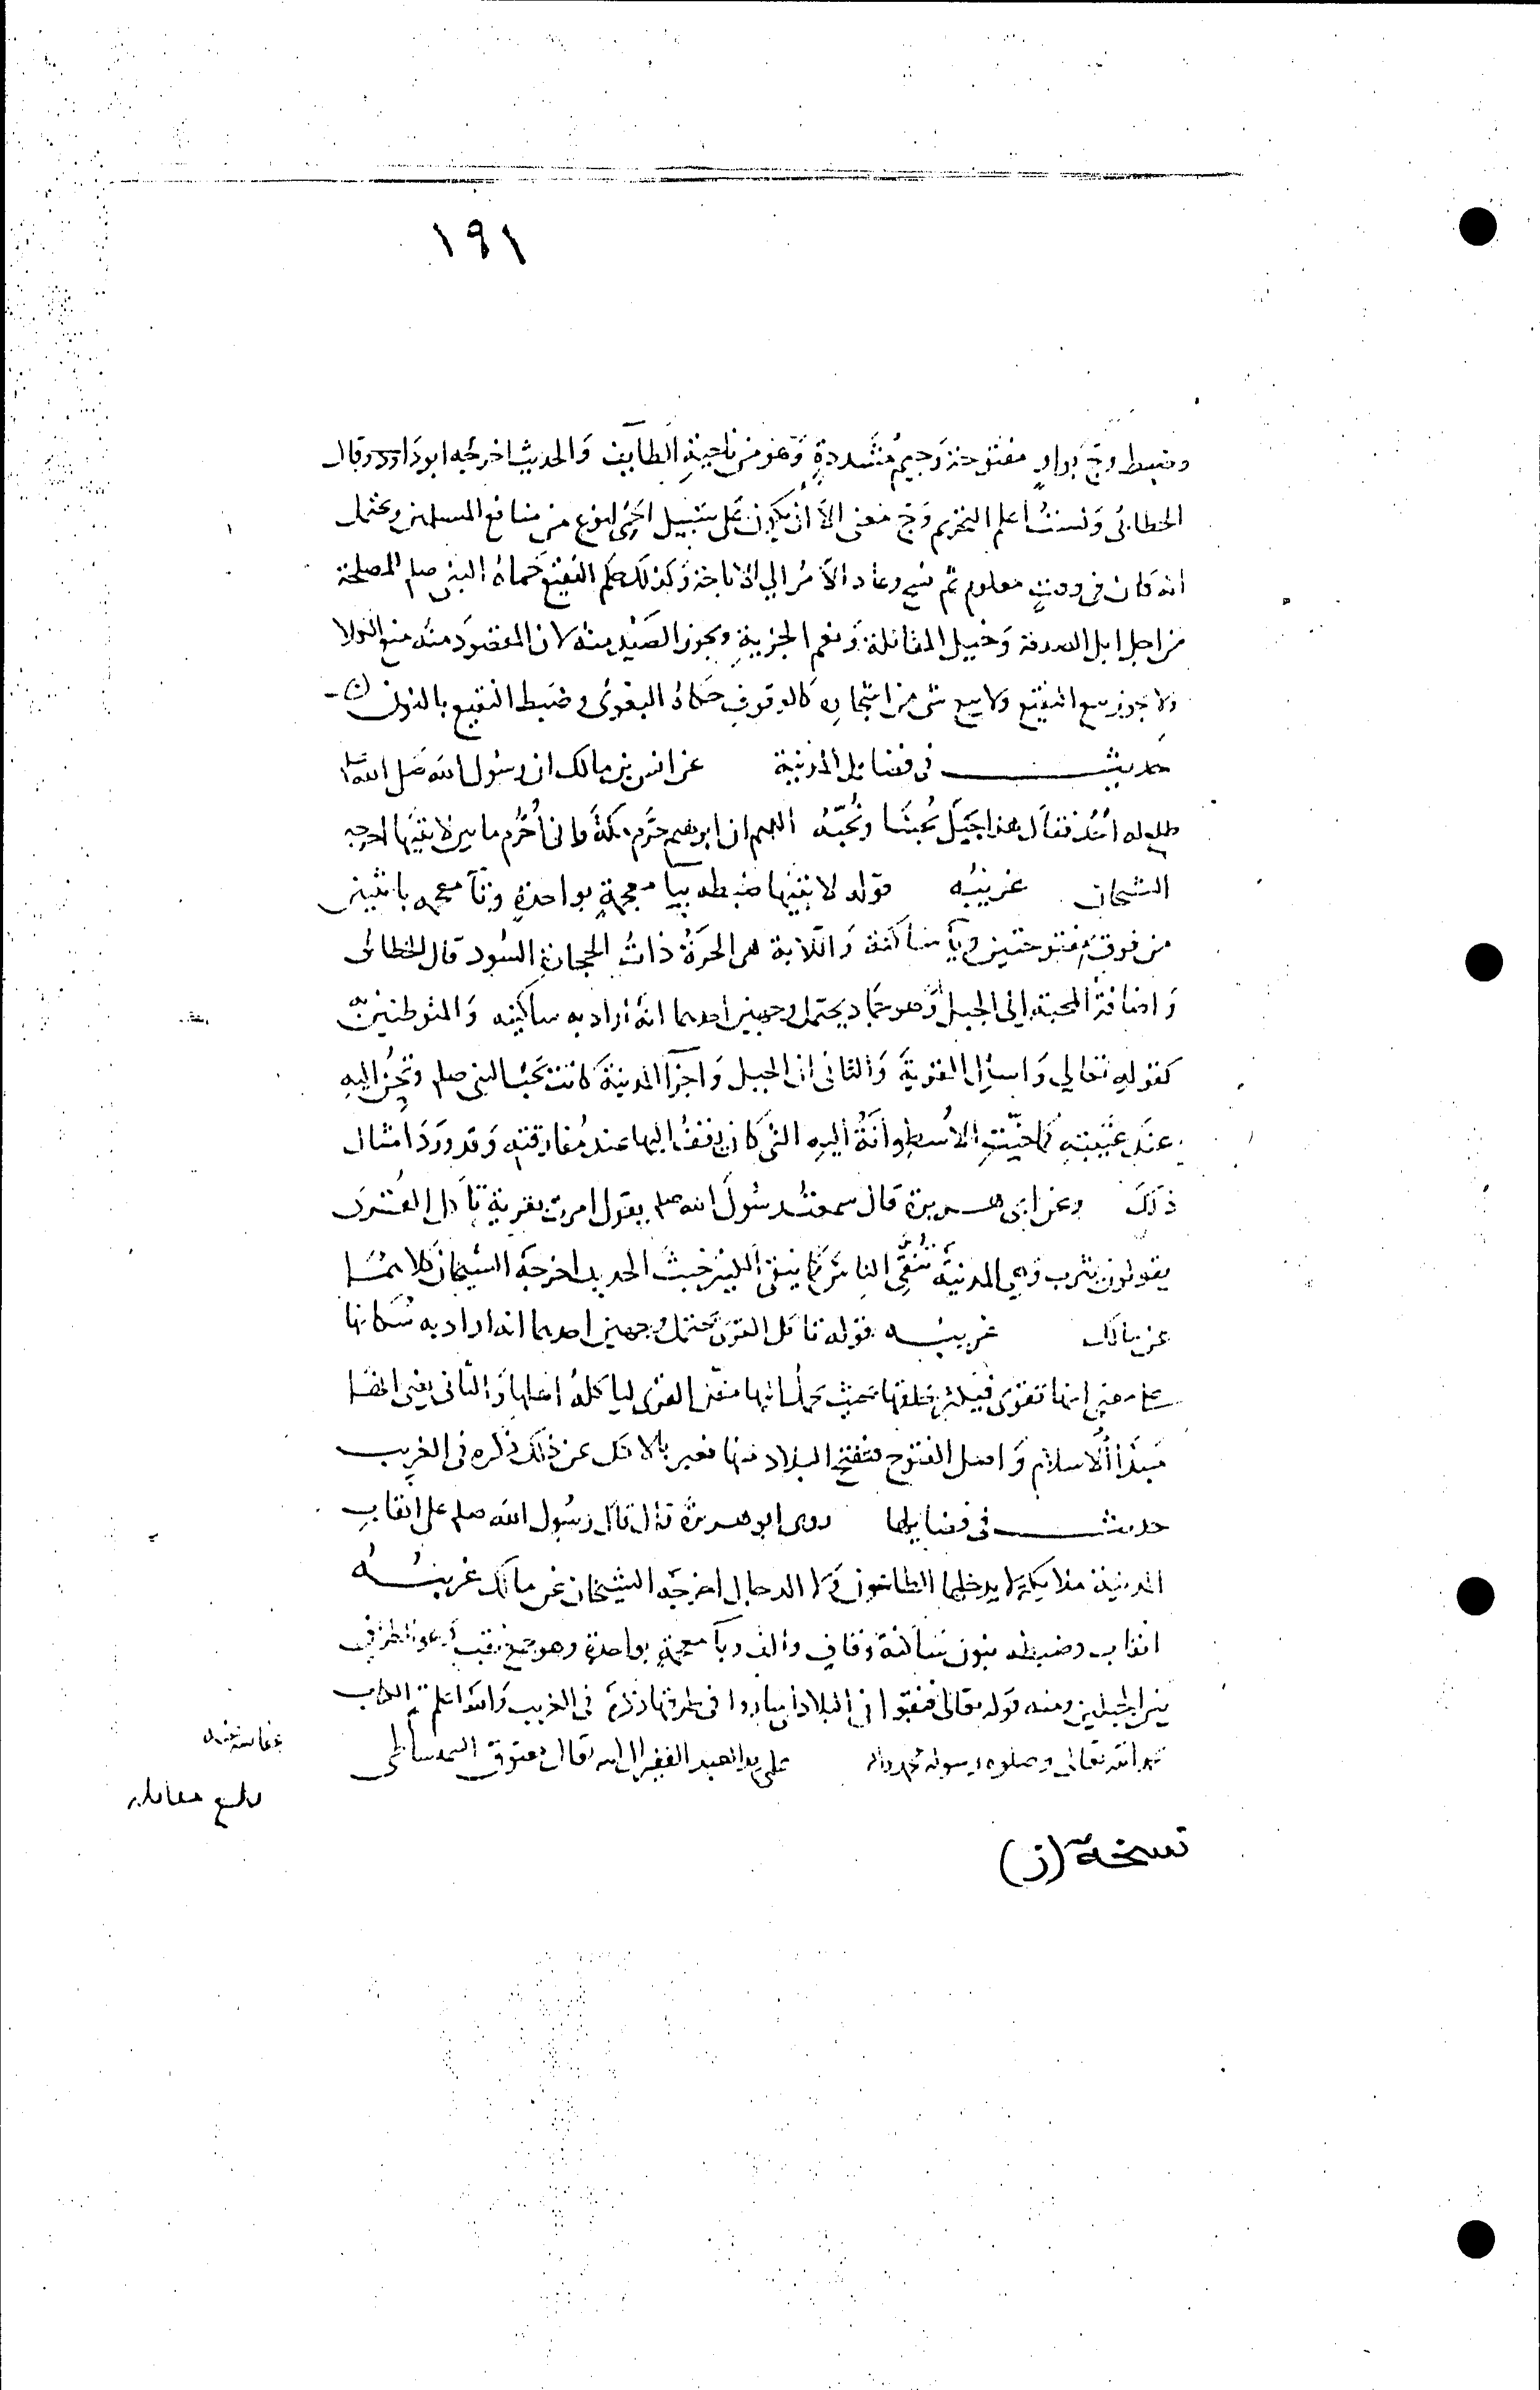 ١٩١
وضبط وج بواو مفتوحة وَجيم مُشَددةٍ وَهو من ناحيةِ الطآيف وَالحديث اخرجه ابو دَاود وقال
الخطابى وَلستُ أعلم لتحريم وَج معنى الا أن يكون عَلى سَبيل الحِمَى لنوع من منافع المسلمين ويحتمل
انه كان فى وقتٍ معلوم ثم نسخ وعاد الأمرُ الي الاباحة وَكذلك حكم النقيع حَماهُ النبى صلم لمصلحة
من اجل ابل الصدقة وَخيل المقاتلة وَنعم الجزيةِ ويجوز الصَيْد منه لان المقصُودَ منه منع الكلا
ولا يجوز بيع النقيع ولا بيع شى من اشجارِه كَالوقوفِ حكاهُ البغوى وضبط النقيع بالنون
حَديثــــــــ فى فضايل المدينة عن انس بن مالك ان رسُول الله صَلى الله
طلع له أحُدٌ فقال هذا جَبَل يُحبنَا ونُحبّهُ اللهم ان ابرهيم حَرَّم مكةَ وانى أُحَرِّم ما بين لابتَيهَا اخرجه
الشيخان غريبُه قوله لابتيها ضبطه ببا معجمةٍ بواحدةٍ وتآ معجمه باثنين
من فوق مفتوحتين ويآ ساكنة وَاللابة هى الحَرَةُ ذاتُ الحجارةِ السُود قال الخطابى
وَاضافة المحبة إلى الجبل وَهو جَماد يحتمل وجهين احدهما انهُ أراد به ساكنيه وَالمتوطنين به
كقولهِ تعالي وَاسألِ القريةَ وَالثانى ان الجبل وَاجزآ المدينة كانت تحبُ النبى صلم وتحِنُ اليهِ
عندَ غَيبتهِ كما حَنّتِ الأُسطوانَةُ اليه التى كان يقفُ اليها عند مُفارقته وَقد وَرَدَ امثال
ذلكَ وعن ابى هـــريرة قال سمعتُ رسُولَ الله صلم يقول امرت بقرية تأكل القُرَى
يقولون يثرب وَهي المدينَة تنفِى الناسَ كما ينفى الكيرُ خبثَ الحديد اخرجَهُ الشيخانَ كلاهمُا
عن مالك غريبـــه قوله تاكل القرَى يحتمل وجهين احدهما انه اراد به سُكانها
مَبدَأ الاسلام وَاصل الفتوح فتفتح البلاد منها فعبر بالاكل عن ذلك ذكره فى الغريب
حديثـــــــ فى فضايلها روى ابو هــريرة قال قال رَسُول الله صلم على انقابِ
المدينة ملايكة لا يدخلها الطاعون وَلا الدجال اخرجه الشيخان عن مالك غريبـــُهُ
انقاب وضبطه بنون ساكنة وَقاف وألف وبآ معجمةٍ بواحدةٍ وهو جمع نقب وَهو الطريق
بين الجبلين ومنه قوله تعالى فنقبوا فى البلاد أى ساروا فى طرقها ذكرهُ فى الغريب وَالله اعلم تم الكتاب
بحمد الله تعالى وصلوه رسوله محمد واله على يد العبد الفقير الى الله تعالى
بلغ مقابله
نسخة (ز)